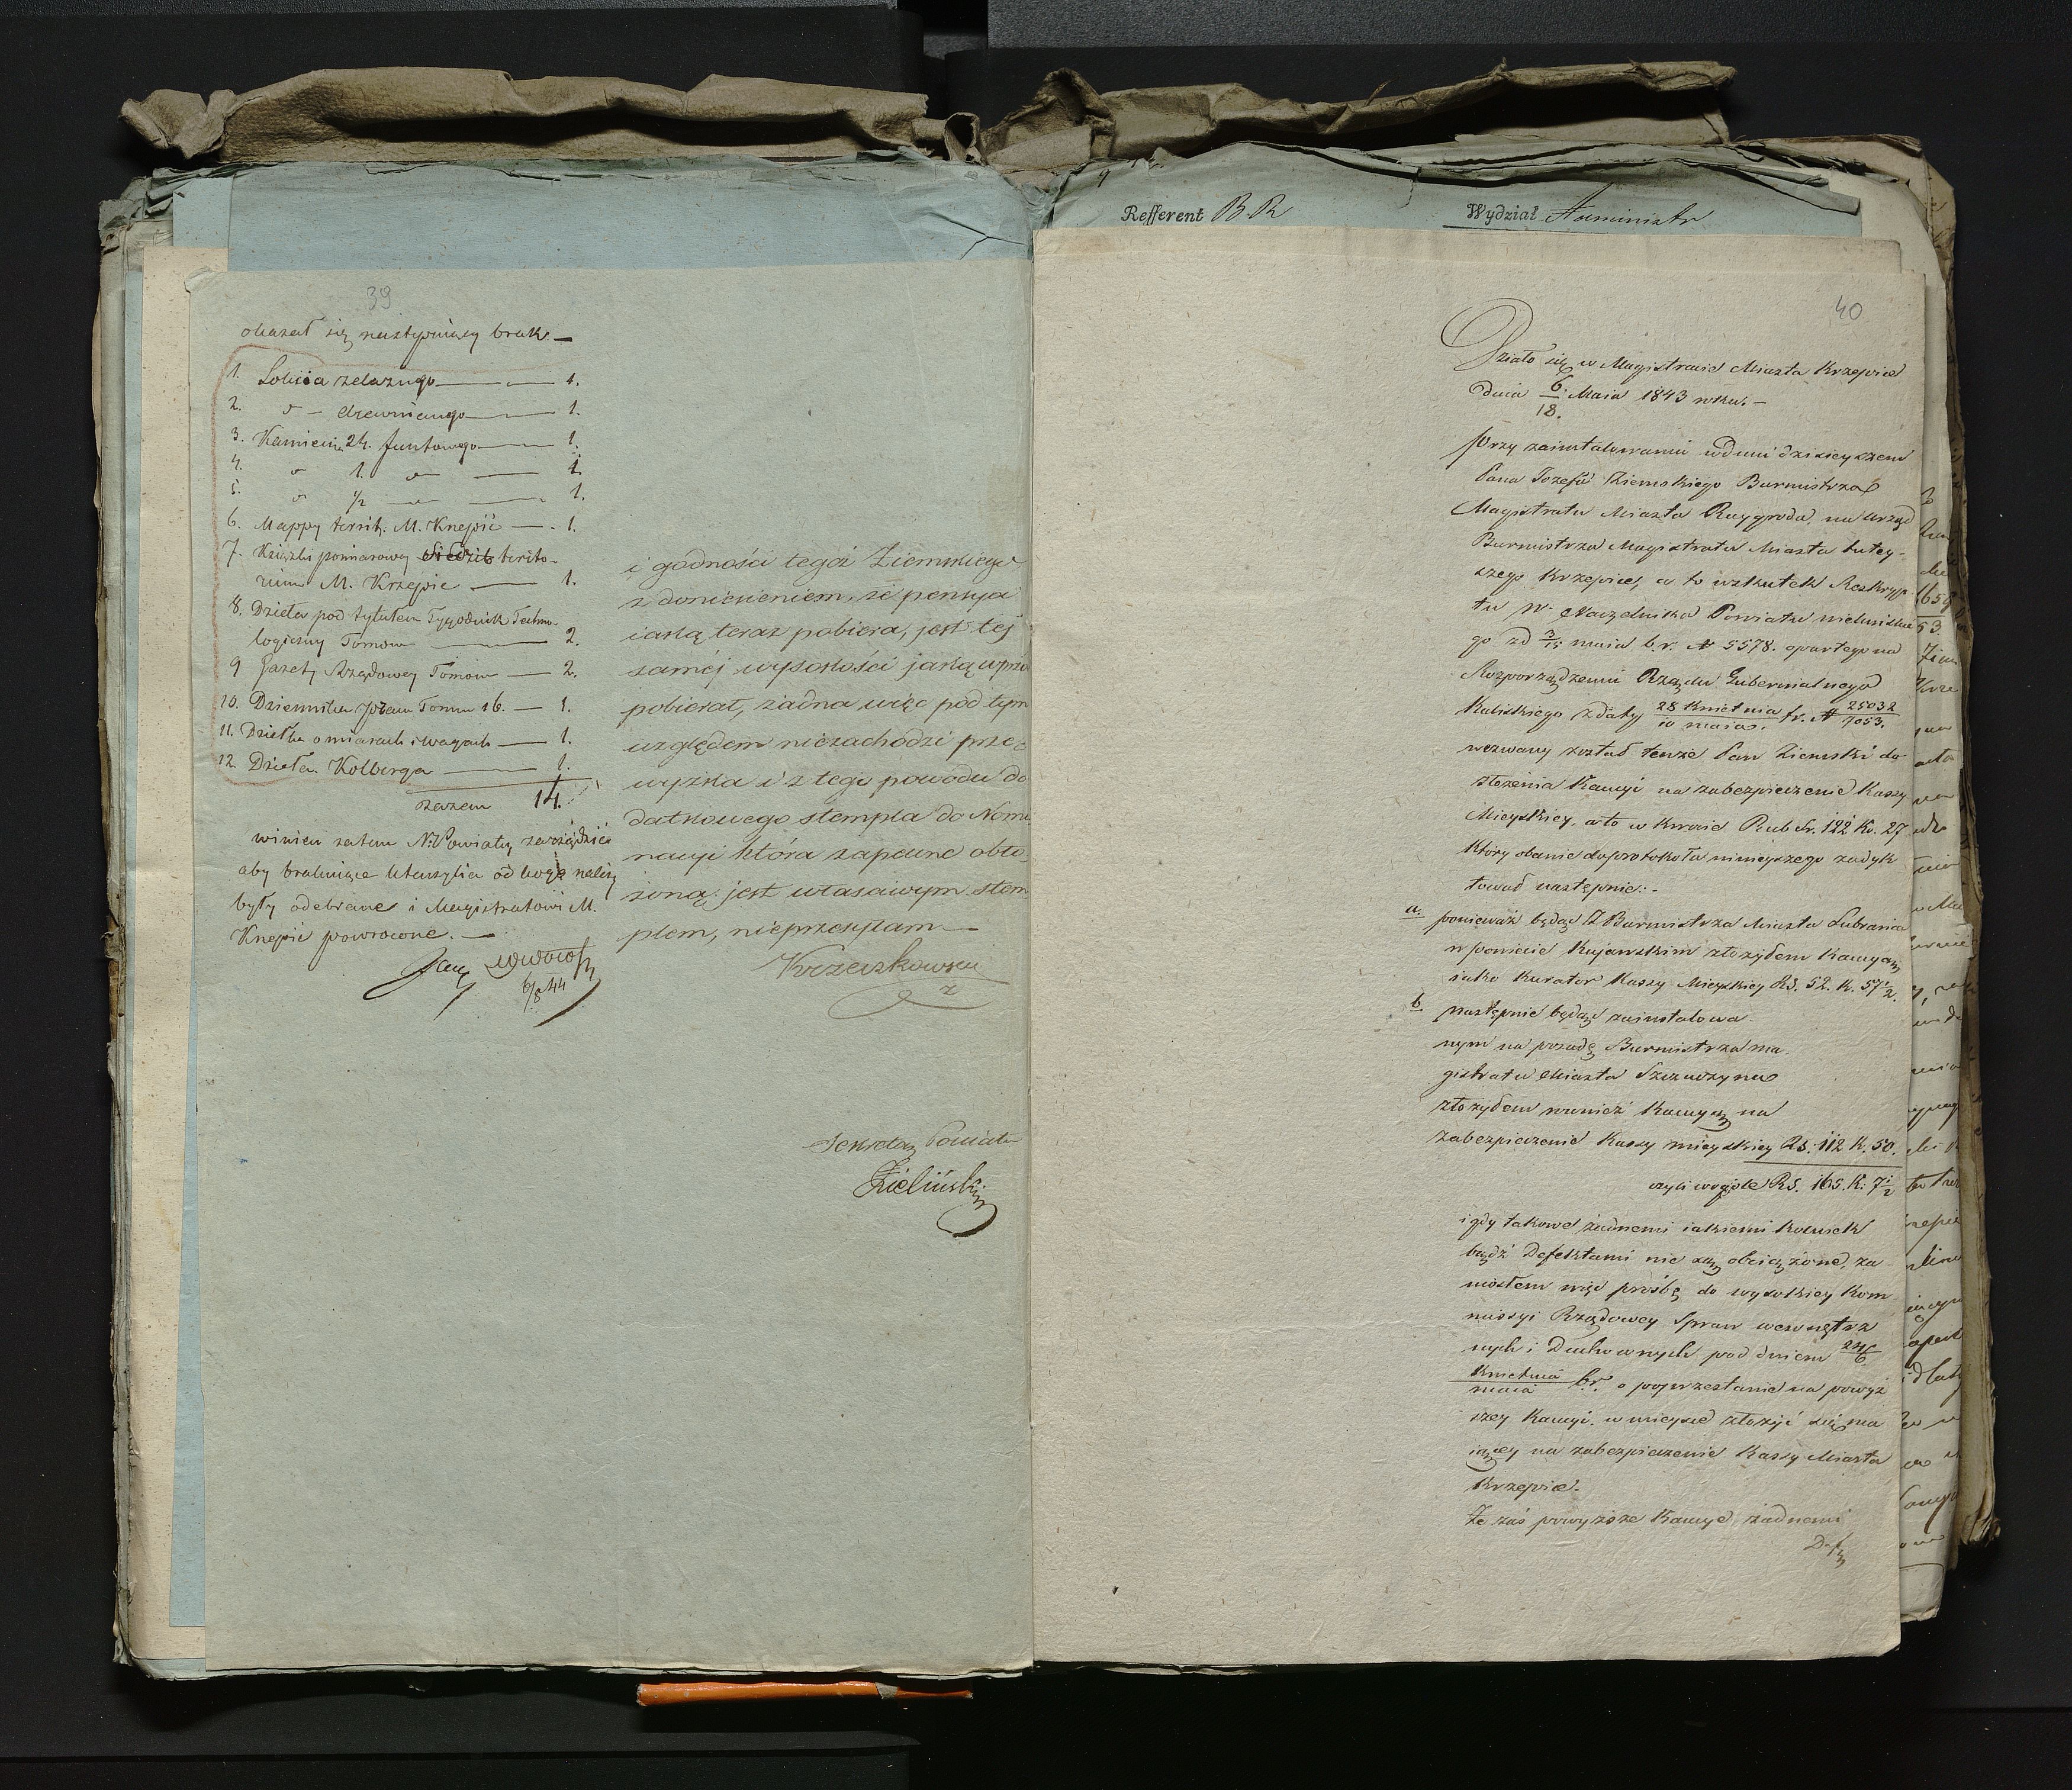 39
okazał się następuiący brak —
1. Łokcia żelaznego — 1.
2. " – drewnianego — 1.
3. Kamienia 24. funtowego — 1.
4. " 1. " — 1.
5. " 1/2 — " — 1.
6. Mappy territ: M. Krzepic — 1.
7. Książki pomiarowey territo-
rium M. Krzepic — 1.
8. Dzieła pod tytułem Tygodnik Techno-
logiczny Tomow — 2.
9 Gazety Rządowey Tomow — 2.
10. Dziennika praw Tomu 16. — 1.
11. Dziełka o miarach i wagach — 1.
12 Dzieła Kolberga — 1.
razem 14.
winien zatem N. Powiatu zarządzić
aby brakuiące Utensylia od kogo należy
były odebrane i Magistratowi M.
Krzepic powrocone. —
6/8 44
i godności tegoż Ziemskiego
z doniesieniem, że pensya
iaką teraz pobiera, jest tej
samej wysokości jaką wprzó
pobierał, żadna więc pod tym
względem niezachodzi prze-
wyżka i z tego powodu do
datkowego stempla do Nomi
nacyi która zapewne obło
żoną jest własciwym stem
plem, nieprzesyłam —
Sekretarz Powiatu
Zieliński
Refferent B. R
Wydział Administr
40
Działo się w Magistracie Miasta Krzepice
dnia 6/18. Maia 1843 roku. —
Przy zainstalowaniu w dniu dzisieyszem
Pana Jozefa Ziemskiego Burmistrza
Magistratu Miasta Raygroda, na urząd
Burmistrza Magistratu Miasta tutey-
szego Krzepice, a to wskutek Reskryp
tu W. Naczelnika Powiatu wieluńskie
go zd 3/15 maia b.r. N 5578. opartego na
Rozporządzeniu Rządu Gubernialnego
Kaliskiego z daty 28 kwietnia/10 maia br. N 25032/7053.
wezwany został tenże Pan Ziemski do
złożenia Kaucyi na zabezpieczenie Kassy
Mieyskiey, a to w kwocie Rub Sr. 122 K. 27
Który obecnie do protokołu ninieyszego zadyk
tował następnie: -
a. ponieważ będąc Z Burmistrza Miasta Lubrańca
w powiecie Kujawskim złożyłem Kaucyą
iako Kurator Kassy Mieyskiey RS. 52. K. 57 1/2.
b następnie będąc zainstalowa
nym na posadę Burmistrza ma-
gistratu Miasta Szczuczyna
złożyłem również Kaucyą na
zabezpieczenie Kassy mieyskiey RS. 112 K. 50.
czyli wogóle RS. 165. K: 7 1/2
i gdy takowe żadnemi iakiemi kolwiek
bądź Defektami nie są obciążone, za-
niosłem więc prośbę do wysokiey Kom
missyi Rządowey Spraw wewnętrz
nych i Duchownych pod dniem 24/6
Kwietnia/maia b.r. o poprzestanie na powyż
szey Kaucyi. w mieysce złożyć się ma
iącey na zabezpieczenie Kassy Miasta
Krzepice.
Że zaś powyższe Kaucye żadnemi